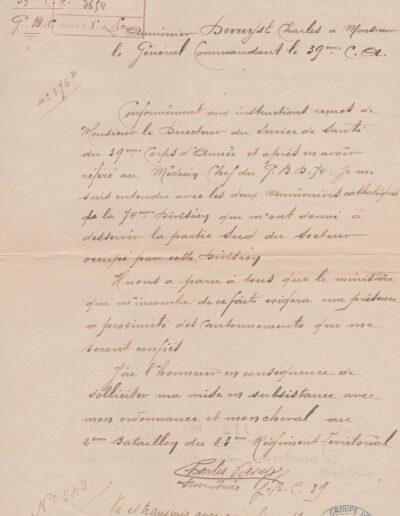 3654
Aumônier Deruyst Charles à Monsieur
le Général Commandant le 39eme C. A.
Conformément aux instructions reçues de
Monsieur le Directeur du Service de Santé
du 39eme Corps d'Armée et après en avoir
référé au Médecin Chef du G. B. D. 74. je me
suis entendu avec les deux aumôniers catholiques
de la 74eme Division qui m'ont donné à
desservir la partie Sud du Secteur
occupé par cette Division
Il nous a paru à tous que le ministère
qui m'incombe de ce fait exigera ma présence
à proximité des Cantonnements qui me
seront confiés
J'ai l'honneur en conséquence de
solliciter ma mise en subsistance avec
mon ordonnance et mon cheval au
2eme Bataillon du 83eme Régiment Territorial
Charles
G. B. C. 39
No 542
Vu et transmis avec
GROUPE D